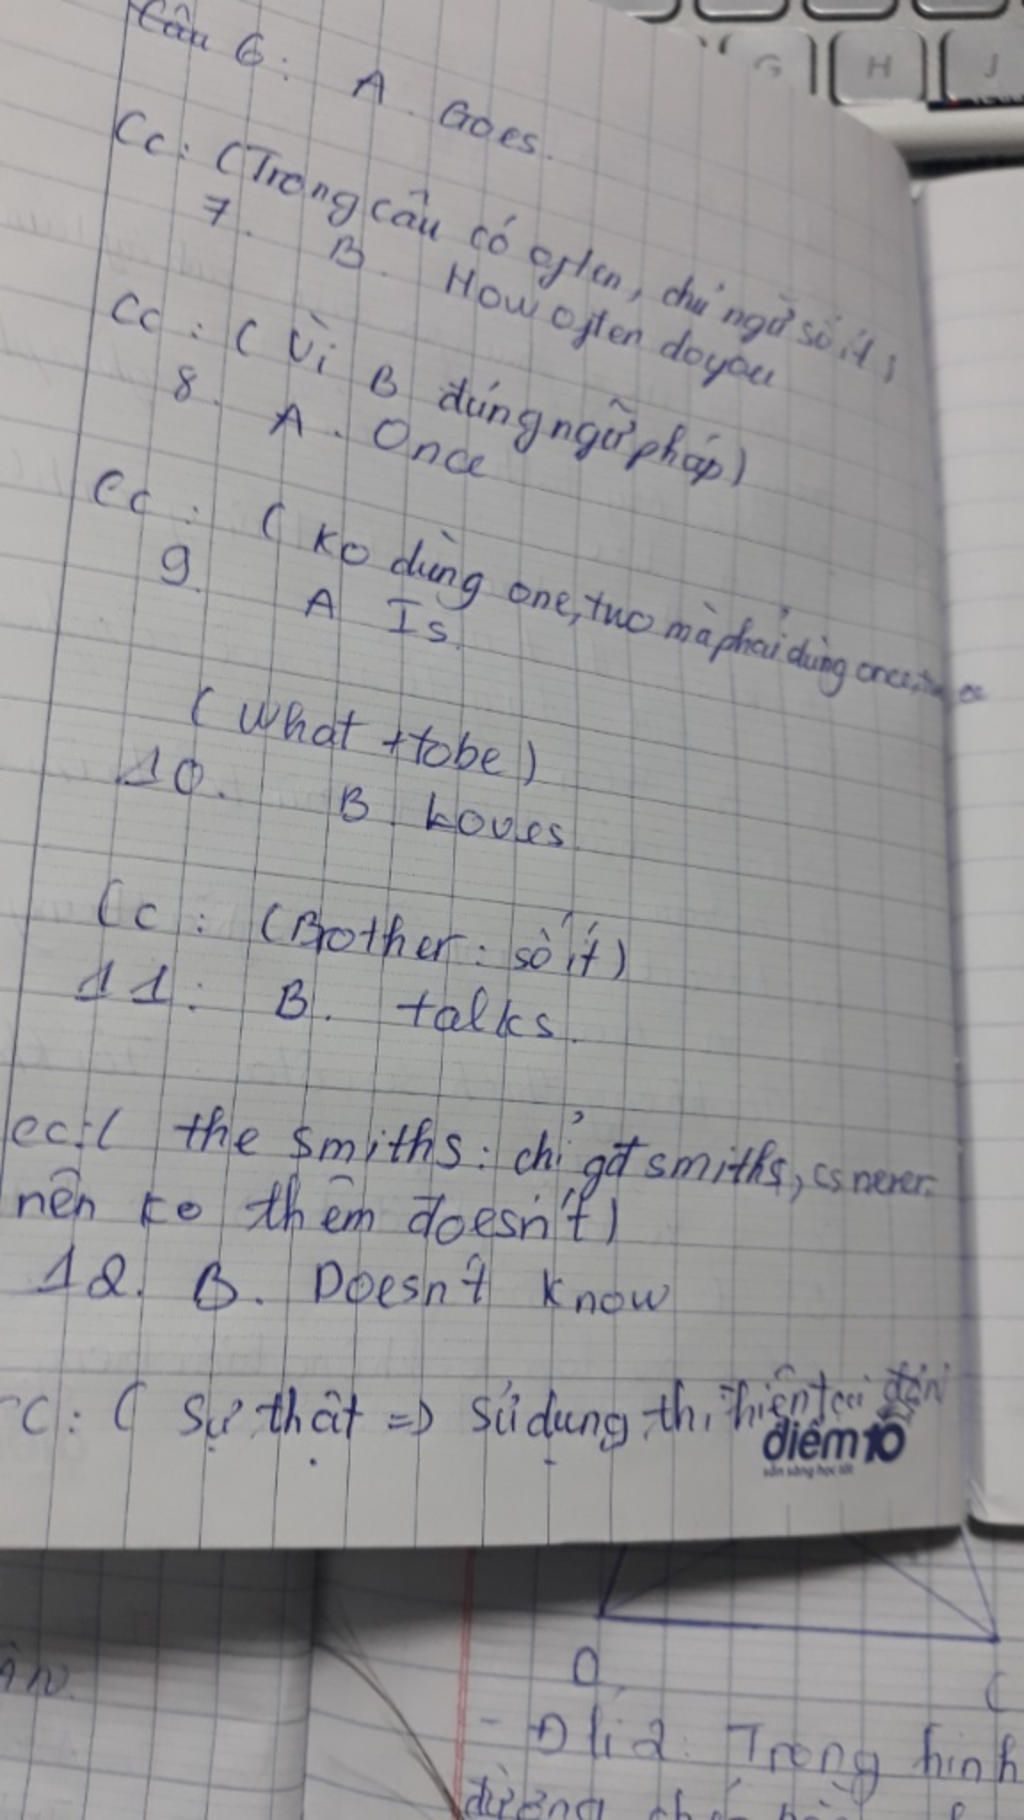 Câu 6: A. Goes.
Cc: (Trong câu có often, chủ ngữ số ít)
7. B. How often do you
Cc: (Vì B đúng ngữ pháp)
8. A. Once
Cc: (Ko dùng one, two mà phải dùng once,
9. A Is.
(What + tobe)
10. B. Loves
Cc: (Brother: số ít)
11: B. talks.
cc:( the smiths: chỉ gđ smiths, cs never.
nên ko thêm doesn't)
12. B. Doesn't know
CC: ( Sự thật => Sử dụng thì hiện tại đơn
điểm10
sẵn sàng học tốt
G H J
D C
- Đlí 2: Trong hình
đường